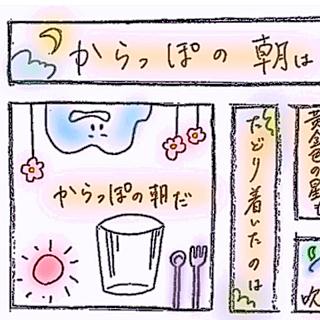 からっぽの朝は
からっぽの朝だ
たどり着いたのは
黄金色の星
吹